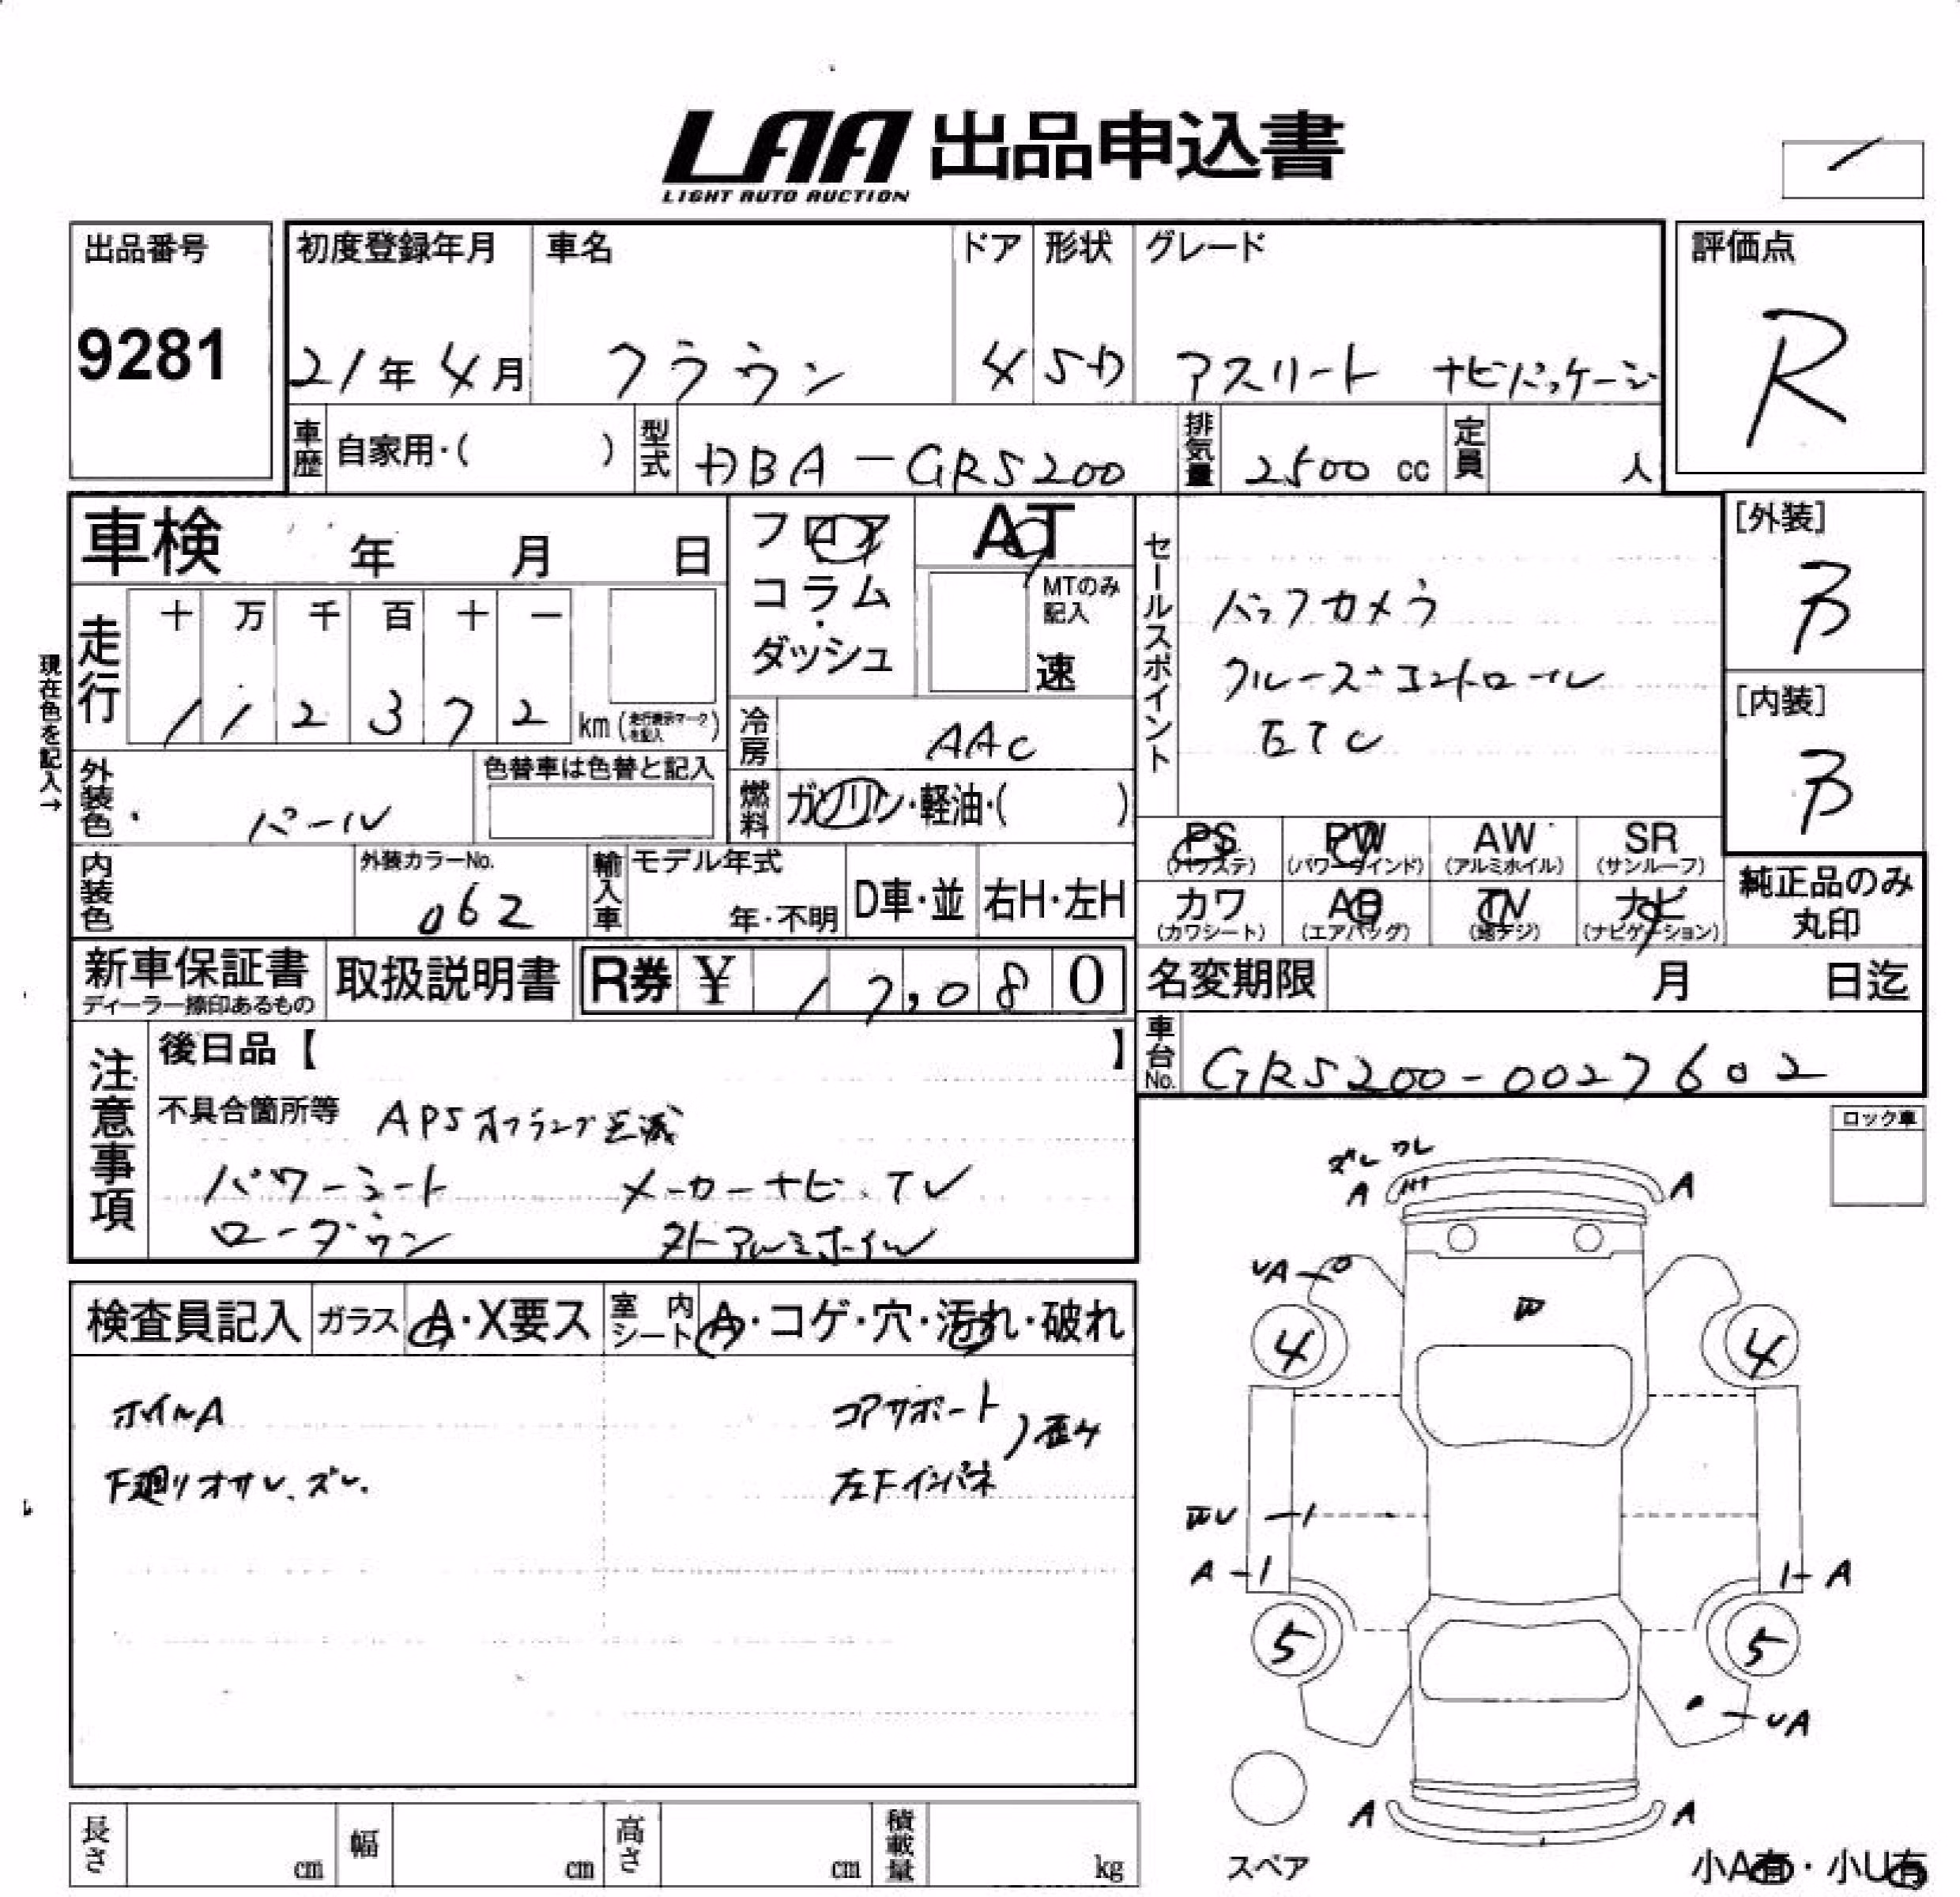 LAA 出品申込書
LIGHT AUTO AUCTION
出品番号
9281
初度登録年月
21年4月
車名
クラウン
ドア
4
形状
SD
グレード
アスリート ナビパッケージ
評価点
R
車歴
自家用・( )
型式
DBA-GRS200
排気量
2500 cc
定員
人
車検 年 月 日
フロア
コラム
・
ダッシュ
AT
MTのみ
記入
速
セールスポイント
バックカメラ
クルーズコントロール
ETC
[外装]
B
[内装]
B
現在色を記入→
走行
十 万 千 百 十 一
1 1 2 3 7 2
km (走行表示マークを記入)
冷房
AAC
外装色
パール
色替車は色替と記入
燃料
ガソリン・軽油・( )
PS
(パワステ)
PW
(パワーウインド)
AW
(アルミホイル)
SR
(サンルーフ)
カワ
(カワシート)
AB
(エアバッグ)
TV
(地デジ)
ナビ
(ナビゲーション)
純正品のみ
丸印
内装色
外装カラーNo.
062
輸入車
モデル年式
年・不明
D車・並
右H・左H
新車保証書
ディーラー捺印あるもの
取扱説明書
R券 ¥ 17,080
名変期限 月 日迄
車台No.
GRS200-0027602
注意事項
後日品【 】
不具合箇所等 APSオフランプ点滅
パワーシート メーカーナビ、TV
ローダウン 外アルミホイル
ロック車
ズレ ワレ
A A
UA
4 4
A A
U
5 5
UA
A A
検査員記入
ガラス
A・X要ス
室内
シート
A・コゲ・穴・汚れ・破れ
ホイルA
下廻りオサレ、ズレ.
コアサポート
左Fインパネ
歪ケ
長さ cm
幅 cm
高さ cm
積載量 kg
スペア
小A有・小U有